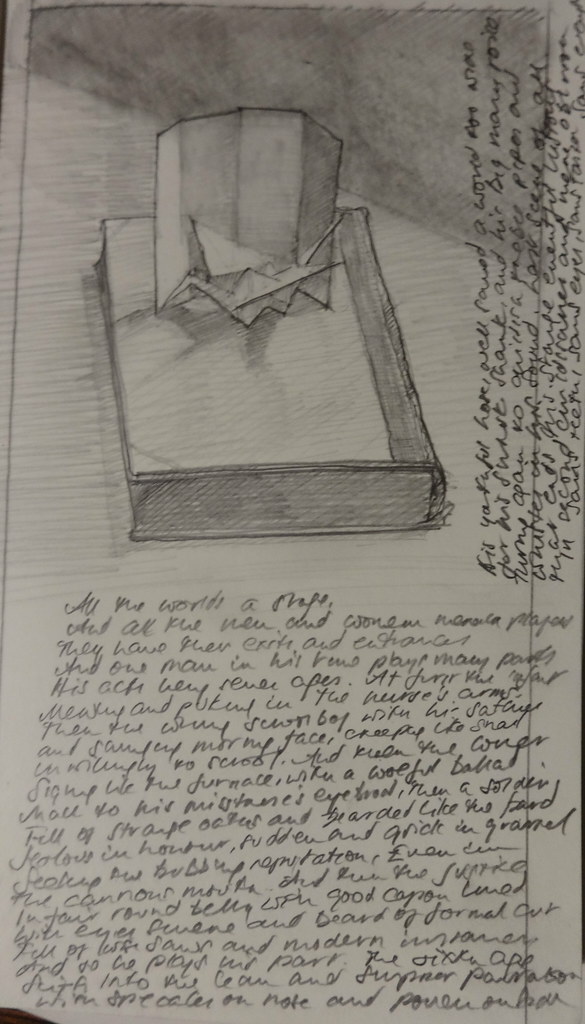 All the worlds a stage,
And all the men and women merely players
They have their exits and entrances
And one man in his time plays many parts
His acts being seven ages. At first the infant
Mewling and puking in the nurse's arms
Then the whining schoolboy with his satchel
and shining morning face, creeping like snail
unwillingly to school. And then the lover
Sighing like the furnace, with a woeful ballad
Made to his mistress's eyebrow, then a soldier
Full of strange oaths and bearded like the pard
Jealous in honour, sudden and quick in quarrel
Seeking the bubbling reputation, Even in
the cannons mouth. And then the justice
In fair round belly with good capon lined
With eyes severe and beard of formal cut
Full of wise saws and modern instances
And so he plays his part. The sixth age
shifts into the lean and slipper pantaloon
with spectacles on nose and pouch on
His youthful hose, well saved a world too wide
for his shrunk shank, and his big manly voice
Turning again to childish treble pipes and
whistles in his sound. Last scene of all
that ends this strange eventful history
In second childishness and mere oblivion
Sans teeth, sans eyes, sans taste, sans